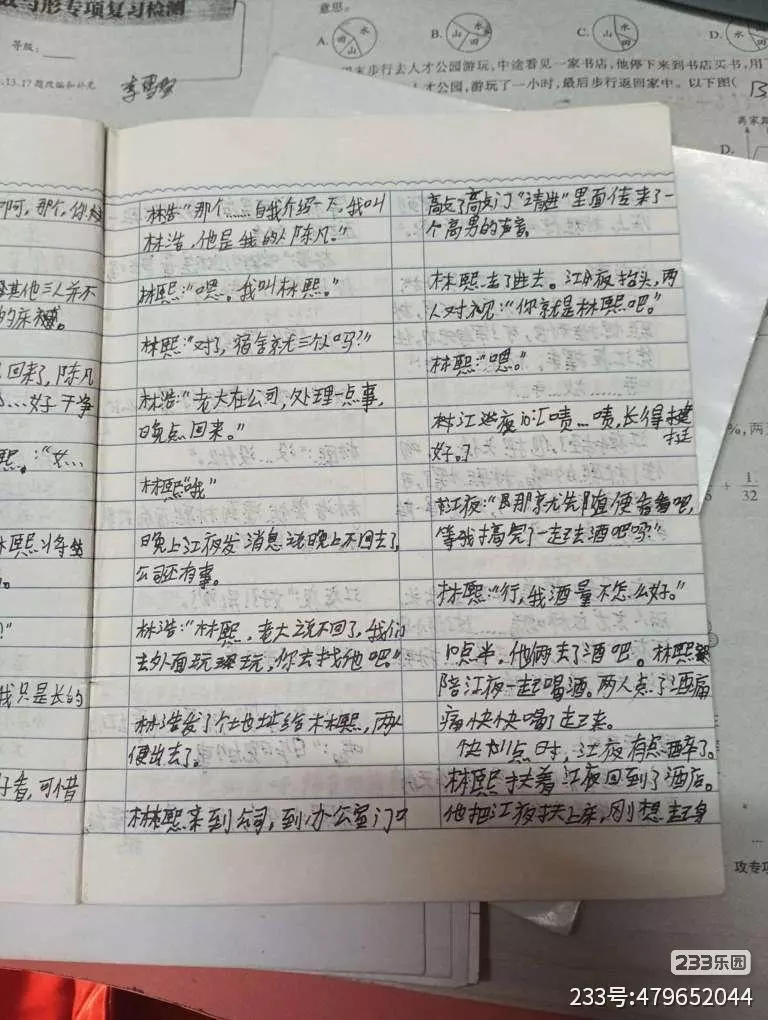 数与形专项复习检测
等级:
.13.17题改编和补充
意思。
A.
山
水
田
B.
山
水
田
C.
山
水
田
D.
水
田
末步行去人才公园游玩,中途看见一家书店,他停下来到书店买书,用了
才公园,游玩了一小时,最后步行返回家中。以下图(
B
离家距
D.
%,两
+ 1/32
攻专项
啊,那个,你
其他三人并不
的床铺。
回来了,陈凡
...好干净
熙:“女...
林熙将
我只是长的
好看,可惜
林浩“那个......自我介绍一下,我叫
林浩,他是我的人陈凡。”
林熙:“嗯。我叫林熙。”
林熙:“对了,宿舍就三个人吗?”
林浩:“老大在公司,处理一点事,
晚点回来。”
林熙“哦”
晚上江夜发消息说晚上不回去了,
公司还有事。
林浩:“林熙,老大说不回了,我们
去外面玩玩,你去找他吧。”
林浩发了个地址给林熙,两人
便出去了。
林熙来到公司,到办公室门口
敲了敲门“请进”里面传来了一
个高男的声音。
林熙走了进去。江夜抬头,两
人对视:“你就是林熙吧。”
林熙:“嗯。”
江夜心:[啧...啧,长得挺
好。]
江夜:“那就先随便看看吧,
等我搞完了一起去酒吧吗?”
林熙:“行,我酒量不怎么好。”
10点半,他俩去了酒吧。林熙
陪江夜一起喝酒。两人点了酒痛
痛快快喝了起来。
快到1点时,江夜有点醉了。
林熙扶着江夜回到了酒店。
他把江夜扶上床,刚想起身
233乐园
233号:479652044